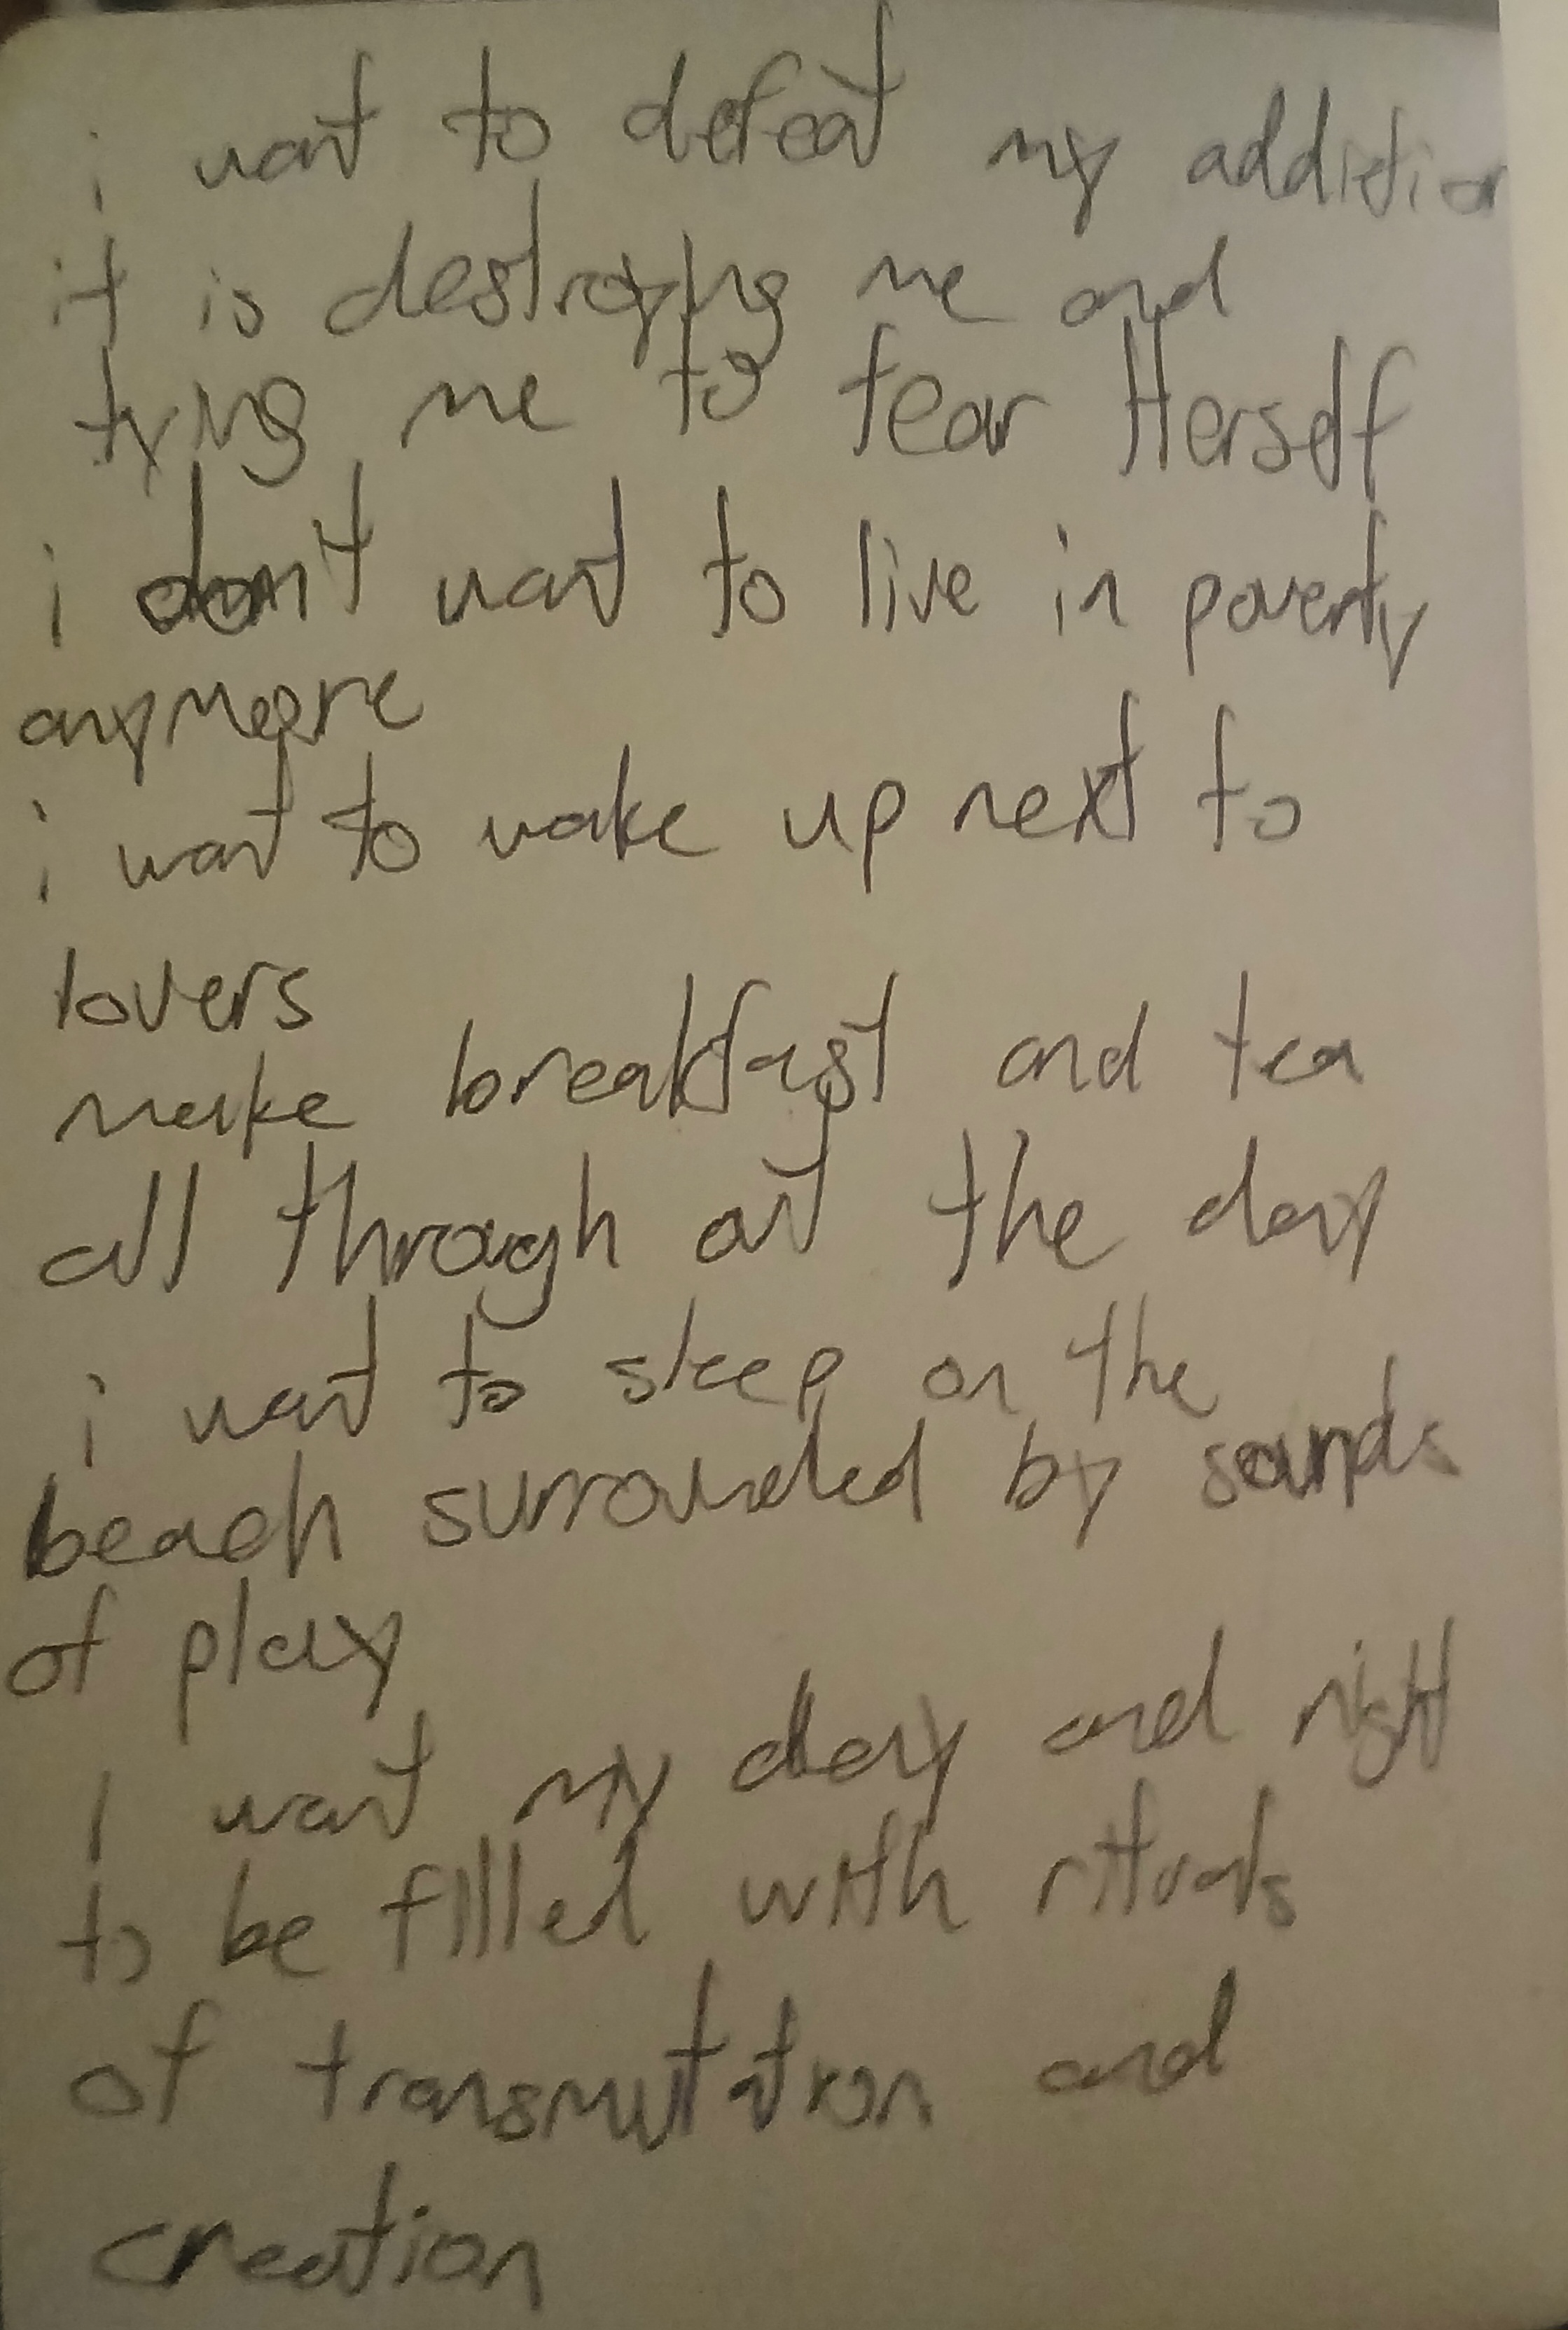 i want to defeat my addiction
it is destroying me and
tying me to fear Herself
i don't want to live in poverty
anymore
i want to wake up next to
lovers
make breakfast and tea
all through out the day
i want to sleep on the
beach surrounded by sounds
of play
I want my day and night
to be filled with rituals
of transmutation and
creation